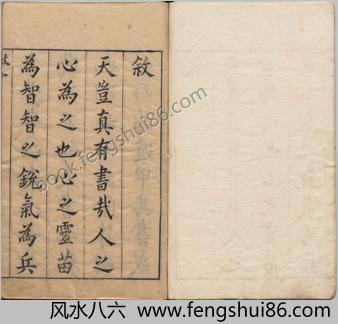 敘
天豈真有書哉人之
心為之也心之靈苗
為智智之銳氣為兵
book.fengshui86.com
风水八六 www.fengshui86.com